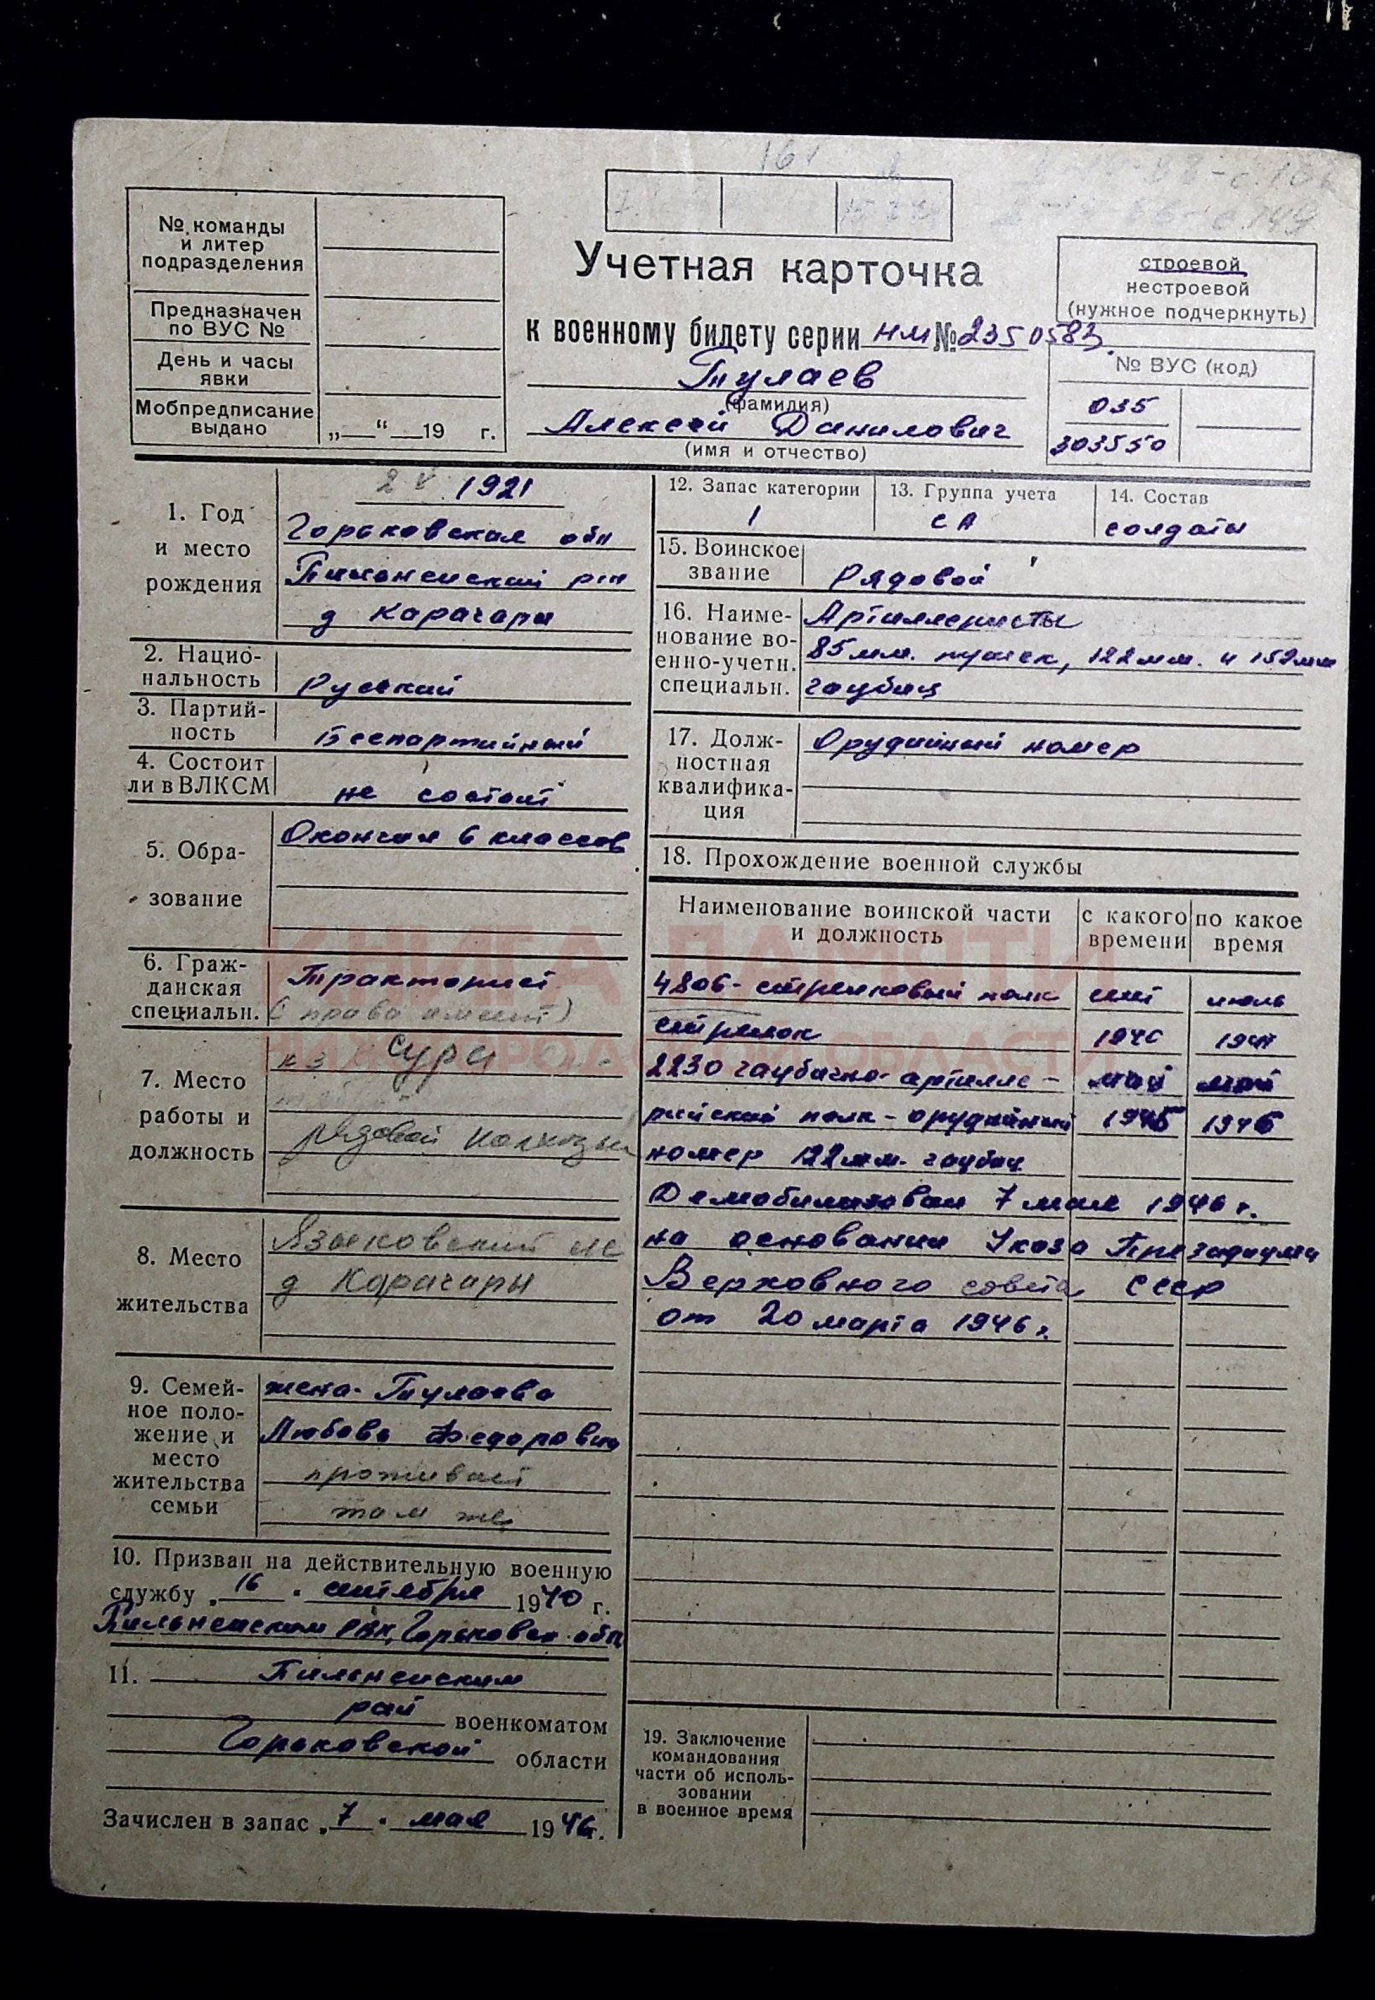 161
№ команды
и литер
подразделения
Предназначен
по ВУС №
День и часы
явки
Мобпредписание
выдано
„ “ 19 г.
Учетная карточка
к военному билету серии НМ № 2350583
Тулаев
(фамилия)
Алексей Данилович
(имя и отчество)
строевой
нестроевой
(нужное подчеркнуть)
№ ВУС (код)
035
303550
1. Год
и место
рождения
1921
Горьковская обл
Пильненский р-н
д Карачары
2. Нацио-
нальность
Русский
3. Партий-
ность
Беспартийный
4. Состоит
ли в ВЛКСМ
не состоит
5. Обра-
зование
Окончил 6 классов
6. Граж-
данская
специальн.
Тракторист
(права имеет)
7. Место
работы и
должность
к-з Сура
рядовой колхозник
8. Место
жительства
Языковский с/с
д Карачары
9. Семей-
ное поло-
жение и
место
жительства
семьи
жена - Тулаева
Любовь Федоровна
проживает
там же
10. Призван на действительную военную
службу „16“ сентября 1940 г.
Пильненским РВК, Горьковск. обл
11. Пильненским
рай военкоматом
Горьковской области
Зачислен в запас „7“ мая 1946 г.
12. Запас категории
1
13. Группа учета
СА
14. Состав
солдаты
15. Воинское
звание
Рядовой
16. Наиме-
нование во-
енно-учетн.
специальн.
Артиллеристы
85 мм. пушек, 122 мм. и 152 мм
гаубиц
17. Долж-
ностная
квалифика-
ция
Орудийный номер
18. Прохождение военной службы
Наименование воинской части
и должность
с какого
времени
по какое
время
4806 - стрелковый полк сент июль
стрелок 1940 1941
2230 гаубично-артилле- май май
рийский полк - орудийный 1945 1946
номер 122 мм. гаубиц
Демобилизован 7 мая 1946 г.
на основании Указа Президиума
Верховного совета СССР
от 20 марта 1946 г.
19. Заключение
командования
части об исполь-
зовании
в военное время
КНИГА ПАМЯТИ
НИЖЕГОРОДСКОЙ ОБЛАСТИ